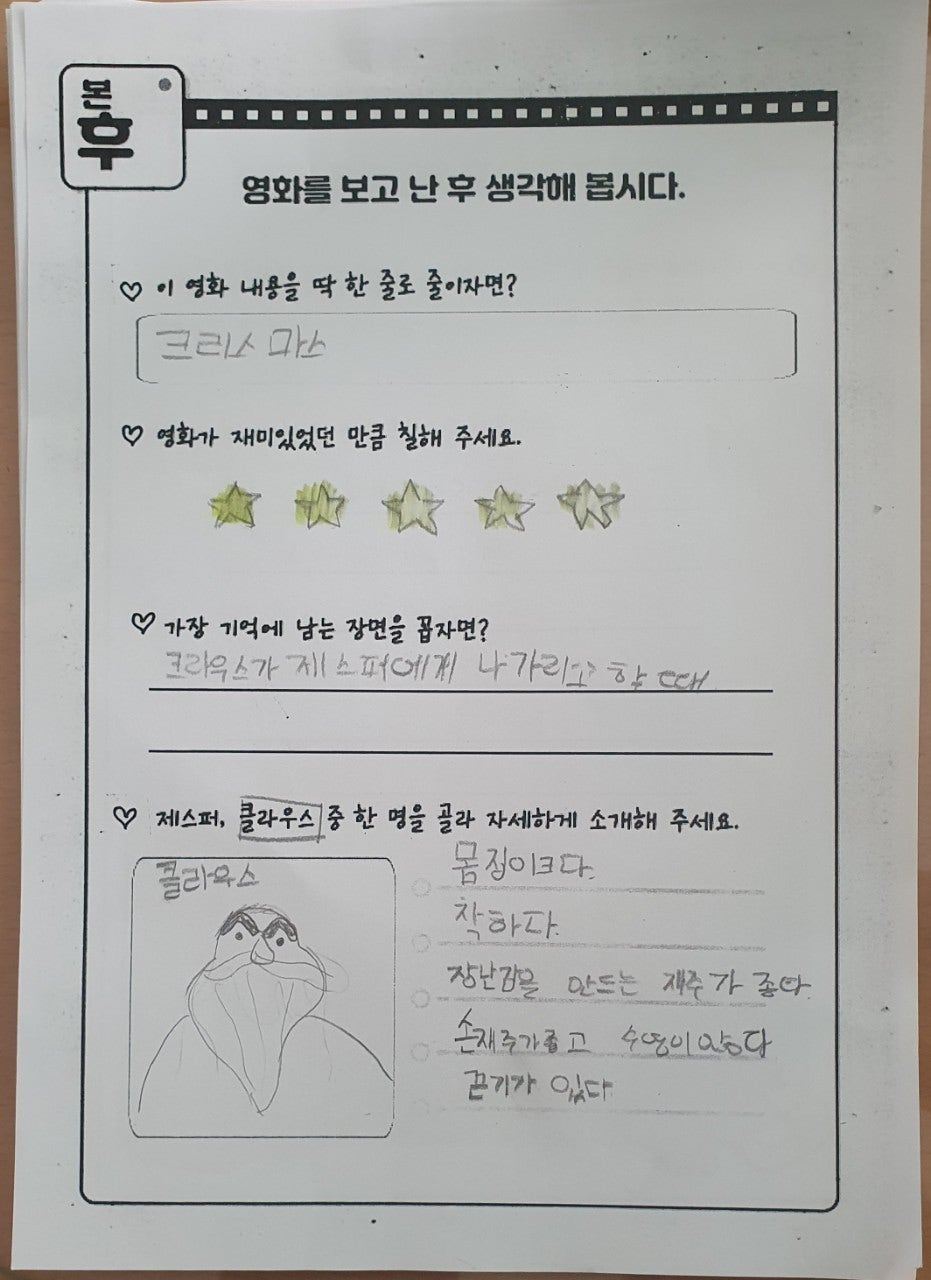 본
후
영화를 보고 난 후 생각해 봅시다.
♡ 이 영화 내용을 딱 한 줄로 줄이자면?
크리스 마스
♡ 영화가 재미있었던 만큼 칠해 주세요.
♡ 가장 기억에 남는 장면을 꼽자면?
크라우스가 제스퍼에게 나가리고 할 때
♡ 제스퍼, 클라우스 중 한 명을 골라 자세하게 소개해 주세요.
클라우스
몸집이크다.
착하다.
장난감을 만드는 재주가 좋다.
손재주가좋고 수염이 있다
끈기가 있다